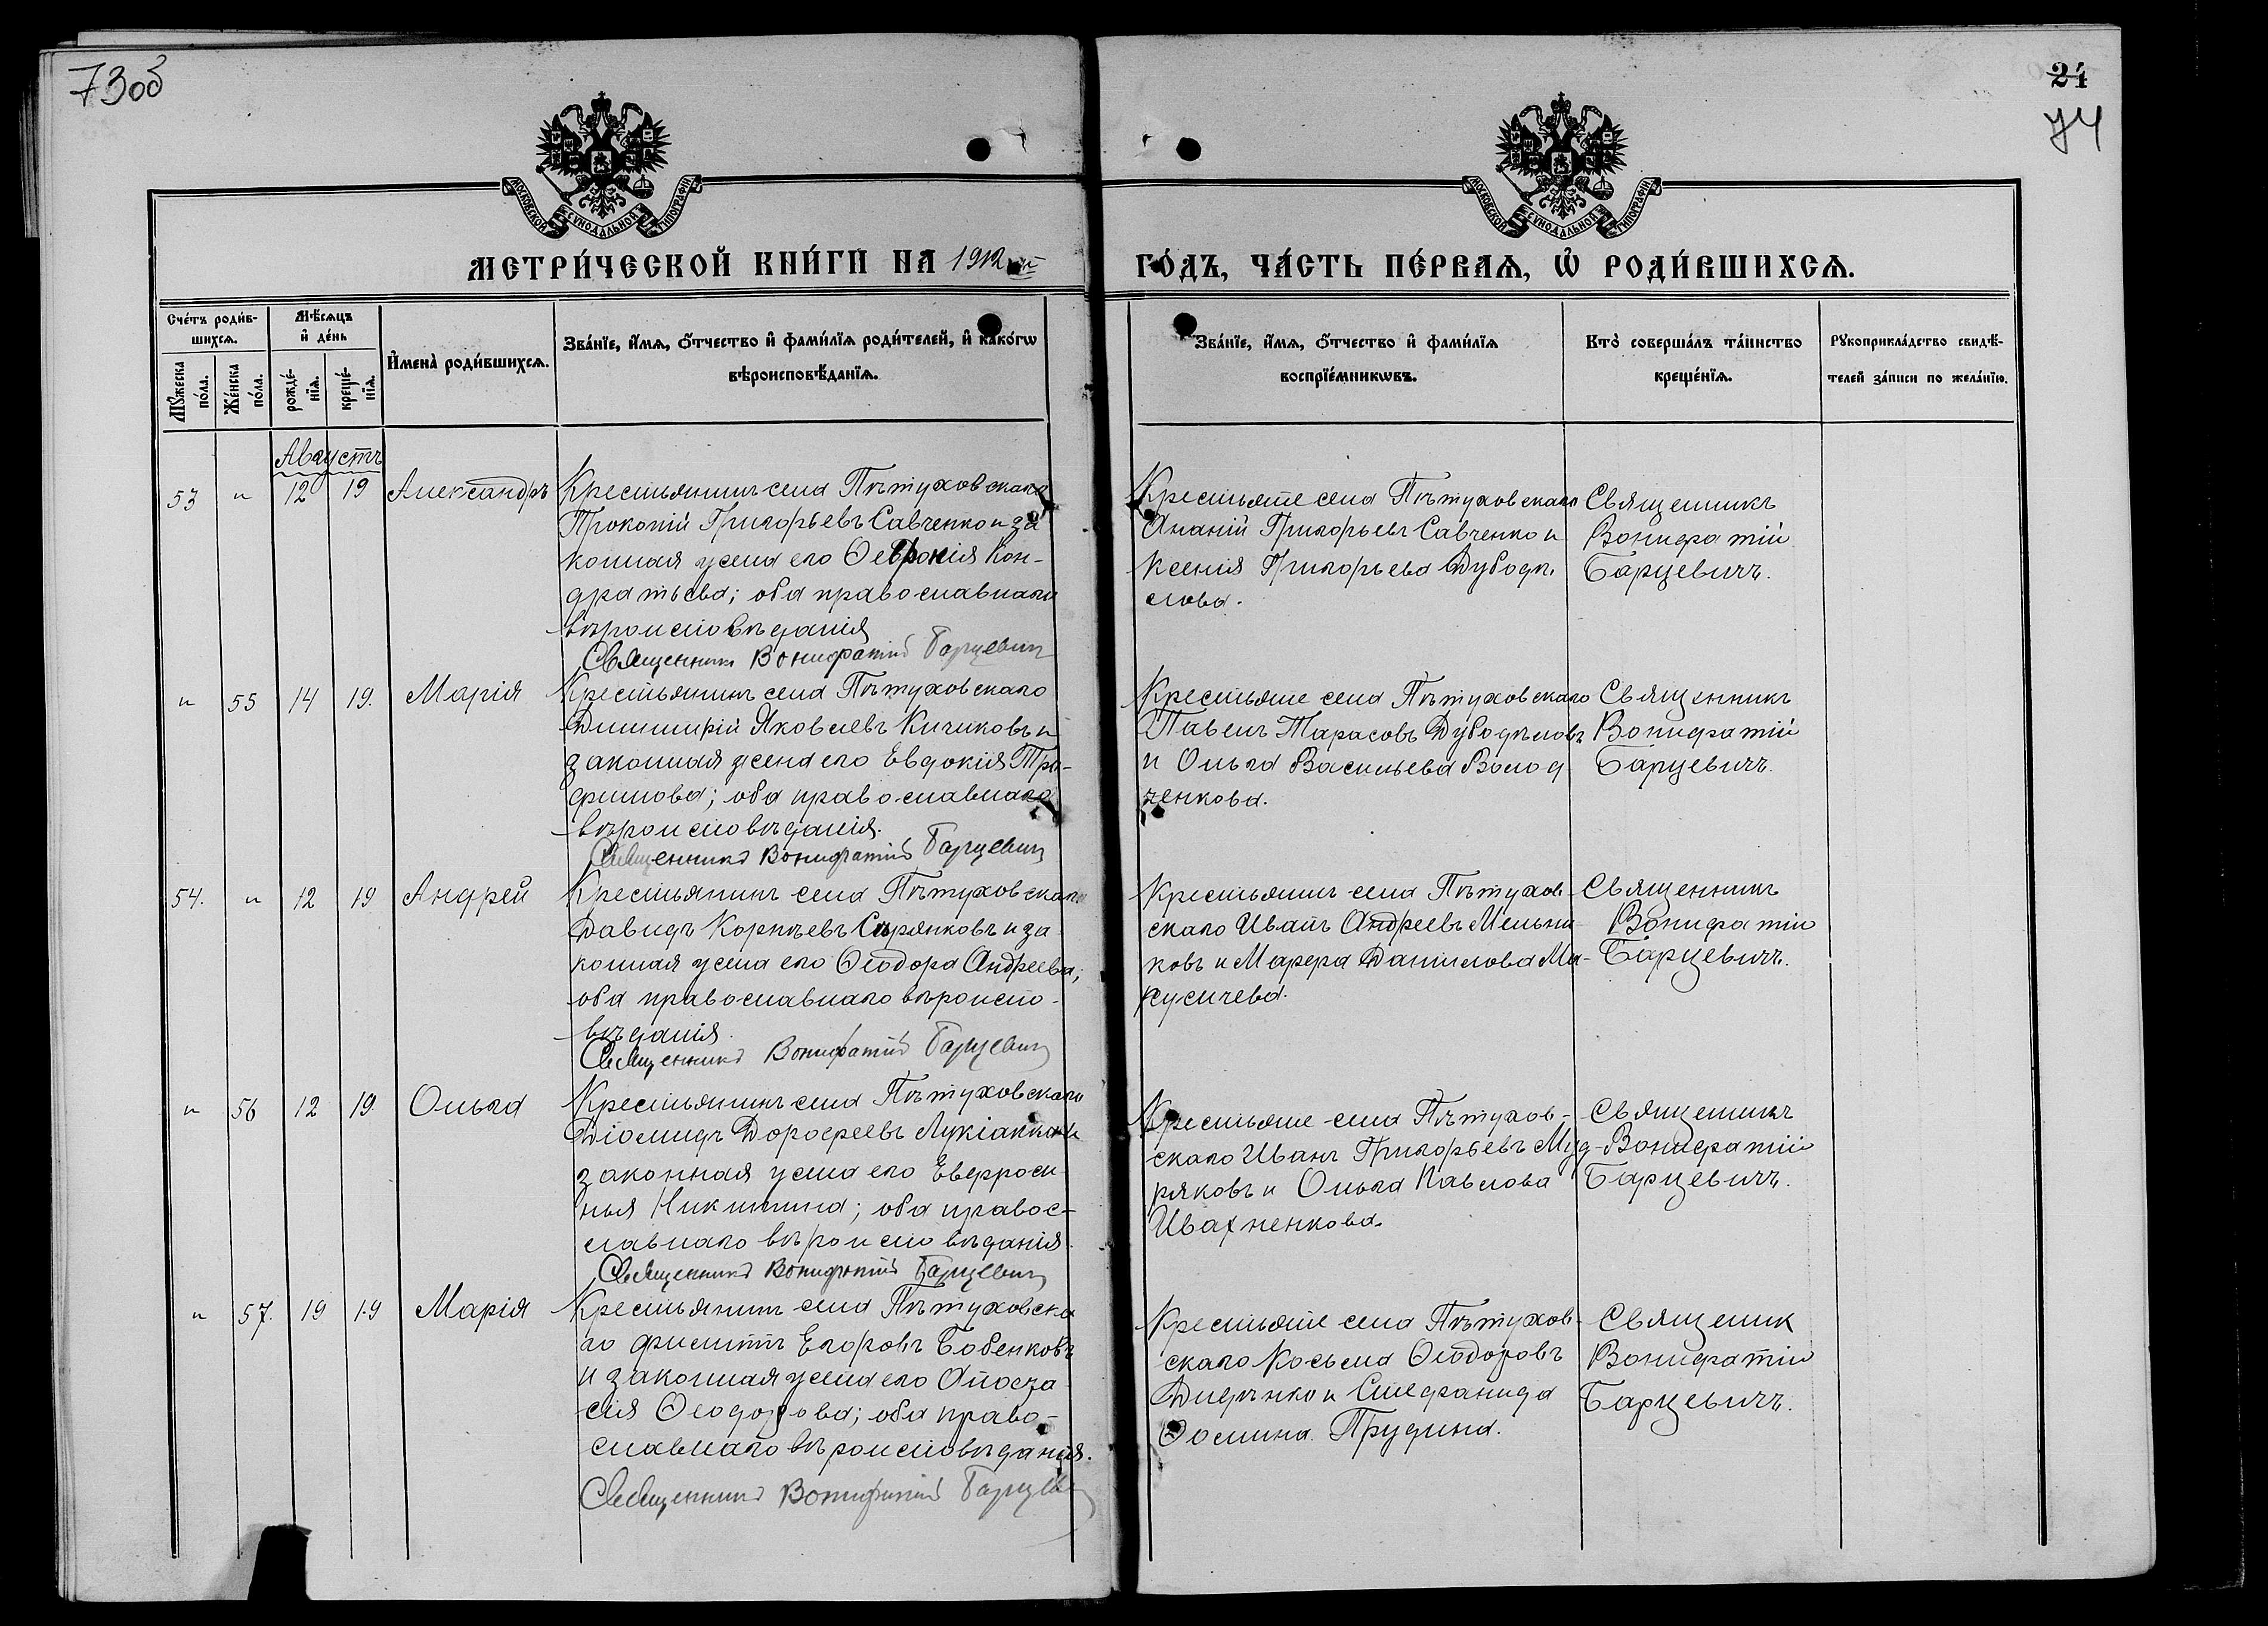 73об
24
74
МОСКОВСКОЙ СУНОДАЛЬНОЙ ТИПОГРАФІИ
МОСКОВСКОЙ СУНОДАЛЬНОЙ ТИПОГРАФІИ
МЕТРИ́ЧЕСКОЙ КНИ́ГИ НА 1912
ГО́ДЪ, ЧА́СТЬ ПЕ́РВАѦ, Ѡ҆ РОДИ́ВШИХСѦ.
Сче́тъ роди́в-
шихсѧ.
Мѣ́сѧцъ
и҆ де́нь
И҆мена̀ роди́вшихсѧ.
Зва́нїе, и҆́мѧ, ѻ҆́тчество и҆ фами́лїѧ роди́телей, и҆ како́гѡ
вѣроисповѣ́данїѧ.
Мꙋ́жеска
по́ла.
Же́нска
по́ла.
рожде́-
нїѧ.
креще́-
нїѧ.
Зва́нїе, и҆́мѧ, ѻ҆́тчество и҆ фами́лїѧ
воспрїе́мникѡвъ.
Кто̀ соверша́лъ та́инство
креще́нїѧ.
Рꙋкоприкла́дство свидѣ́-
телей за́писи по жела́нїю.
Августъ
53 " 12 19 Александръ
Крестьянинъ села Пѣтуховскаго
Прокопій Григорьевъ Савченко и за
конная жена его Ѳевронія Кон-
дратьева; оба православнаго
вѣроисповѣданія
Священникъ Вонифатій Барцевичъ
Крестьяне села Пѣтуховскаго
Ананій Григорьевъ Савченко и
Ксенія Григорьева Дубодѣ
лова.
Священникъ
Вонифатій
Барцевичъ.
" 55 14 19. Марія
Крестьянинъ села Пѣтуховскаго
Димитрій Яковлевъ Кичиковъ и
законная жена его Евдокія Тро-
фимова; оба православнаго
вѣроисповѣданія.
Священникъ Вонифатій Барцевичъ
Крестьяне села Пѣтуховскаго
Павелъ Тарасовъ Дубодѣловъ
и Ольга Васильева Волод
ченкова.
Священникъ
Вонифатій
Барцевичъ.
54. " 12 19 Андрей
Крестьянинъ села Пѣтуховскаго
Давидъ Корнѣевъ Скрянковъ и за
конная жена его Ѳеодора Андреева;
оба православнаго вѣроиспо-
вѣданія.
Священникъ Вонифатій Барцевичъ
Крестьянинъ села Пѣтухов-
скаго Иванъ Андреевъ Мельни-
ковъ и Марфа Данилова Ма-
кусичева.
Священникъ
Вонифатій
Барцевичъ.
" 56 12 19. Ольга
Крестьянинъ села Пѣтуховскаго
Діомидъ Дорофеевъ
законная жена его Евфроси
нья Никитина; оба правос-
лавнаго вѣроисповѣданія.
Священникъ Вонифатій Барцевичъ
Крестьяне села Пѣтухов-
скаго Иванъ Григорьевъ Муд-
ряковъ и Ольга Павлова
Ивахненкова.
Священникъ
Вонифатій
Барцевичъ.
" 57. 19 19 Марія
Крестьянинъ села Пѣтуховска
го Филиппъ Егоровъ Бобенковъ
и законная жена его
Ѳеодорова; оба право-
славнаго вѣроисповѣданія.
Священникъ Вонифатій Барцевичъ
Крестьяне села Пѣтухов-
скаго Косьма Ѳеодоровъ
Дидѣнко и Стефанида
Ѳомина Прудина.
Священик
Вонифатій
Барцевичъ.